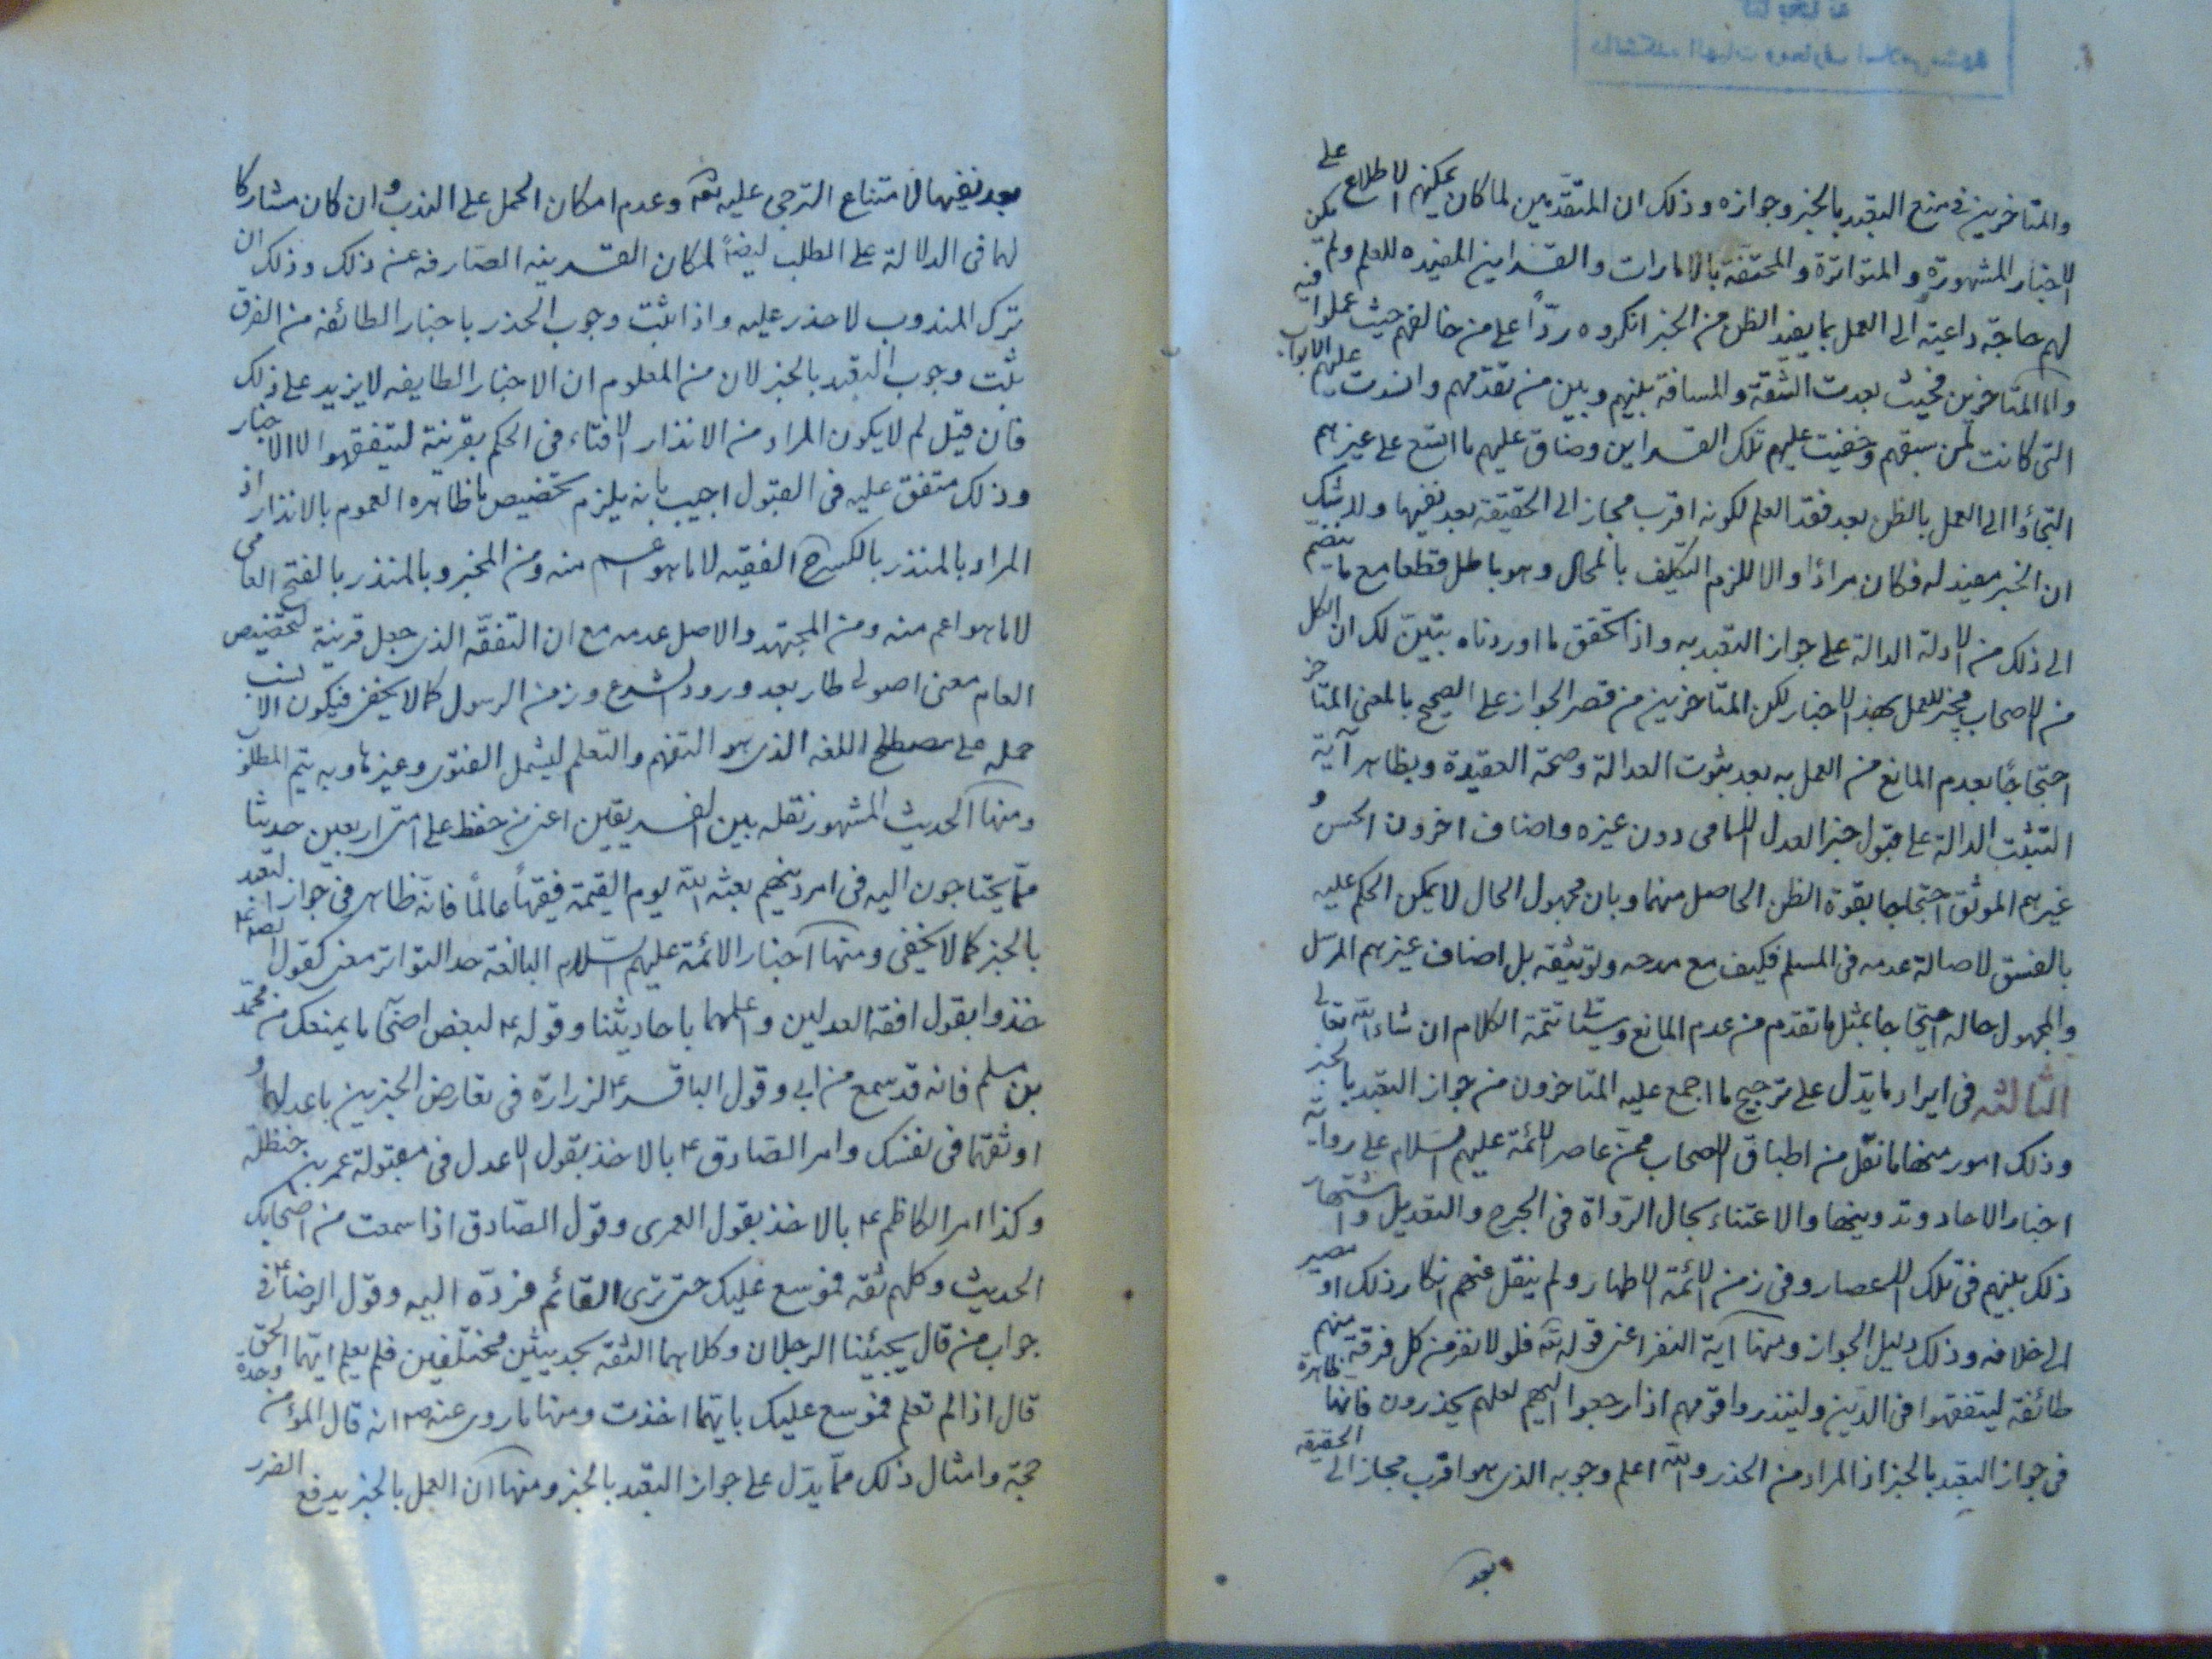 والمتاخرين فى منع التعبد بالخبر وجوازه وذلك ان المتقدمين لما كان يمكنهم الاطلاع على
الاخبار المشهورة والمتواترة والمحتفة بالامارات والقراين المفيده للعلم ولم يكن
لهم حاجة داعية الى العمل بما يفيد الظن من الخبر انكروه ردّاً على من خالفهم حيث عملوا فيه
واما المتاخرين فحيث بعدت الشقة والمسافة بينهم وبين من تقدمهم وانسدت عليهم الابواب
التى كانت لمن سبقهم وخفيت عليهم تلك القراين وضاق عليهم ما اتسع على غيرهم
التجاؤا الى العمل بالظن بعد فقد العلم لكونه اقرب مجاز الى الحقيقة بعد نفيها ولا شك
ان الخبر مفيد له فكان مرادًا والا للزم التكليف بالمحال وهو باطل قطعا مع ما ينضم
الى ذلك من الادلة الدالة على جواز التعبد به واذا تحقق ما اوردناه يتبيّن لك ان الكل
من الاصحاب مجيز للعمل بهذا الاخبار لكن المتاخرين من قصر الجواز على الصحيح بالمعنى المتاخر
احتجاجًا بعدم المانع من العمل به بعد ثبوت العدالة وصحة العقيدة وبظاهر آية
التثبت الدالة على قبول خبر العدل الامامى دون غيره واضاف اخرون الحسن و
غيرهم الموثق احتجاجا بقوة الظن الحاصل منهما وبان مجهول الحال لا يمكن الحكم عليه
بالفسق لاصالة عدمه فى المسلم فكيف مع مدحه وتوثيقه بل اضاف غيرهم المرسل
والمجهول حاله احتجاجا بمثل ما تقدم من عدم المانع وسياتى تتمة الكلام ان شاء الله تعالى
الثالثة فى ايراد ما يدل على ترجيح ما اجمع عليه المتاخرون من جواز التعبد بالخبر
وذلك امور منها ما نقل من اطباق الاصحاب ممن عاصر الائمة عليهم السلام على رواية
اخبار الاحاد وتدوينها والاعتناء بحال الرواة فى الجرح والتعديل واشتهار
ذلك بينهم فى تلك الاعصار وفى زمن الائمة الاطهار ولم ينقل عنهم انكار ذلك او مصير
الى خلافه وذلك دليل الجواز ومنها آية النفر اعنى قوله تعه فلولا نفر من كل فرقة منهم
طائفة ليتفقهوا فى الدين ولينذروا قومهم اذا رجعوا اليهم لعلهم يحذرون فانها ظاهرة
فى جواز التعبد بالخبر اذ المراد من الحذر والله اعلم وجوبه الذى هو اقرب مجاز الى الحقيقة
بعد
بعد نفيها لامتناع الترجى عليه تعه وعدم امكان الحمل على الندب وان كان مشاركا
لها فى الدلالة على الطلب ايضاً لمكان القرينه الصارفه عن ذلك وذلك ان
ترك المندوب لا حذر عليه واذا ثبت وجوب الحذر باخبار الطائفة من الفرق
ثبت وجوب التعبد بالخبر لان من المعلوم ان الاخبار الطايفه لا يزيد على ذلك
فان قيل لم لا يكون المراد من الانذار الافتاء فى الحكم بقرينة ليتفقهوا لا الاخبار
وذلك متفق عليه فى القبول اجيب بانه يلزم تخصيص ما ظاهره العموم بالانذار اذ
المراد بالمنذر بالكسر ح الفقيه لا ما هو اعم منه ومن المخبر وبالمنذر بالفتح العامى
لا ما هو اعم منه ومن المجتهد والاصل عدمه مع ان التفقّه الذى جعل قرينة لتخصيص
العام معنى اصولى طار بعد ورود الشرع وزمن الرسول كما لا يخفى فيكون الانسب
حمله على مصطلح اللغه الذى هو التفهم والتعلم ليشمل الفتوى وغيرها وبه يتم المطلوب
ومنها الحديث المشهور نقله بين الفريقين اعنى من حفظ على امتى اربعين حديثا
ممّا يحتاجون اليه فى امر دينهم بعثه الله يوم القيمة فقيهاً عالمًا فانه ظاهر فى جواز التعبد
بالخبر كما لا يخفى ومنها اخبار الائمة عليهم السّلام البالغة حد التواتر معنى كقول الصادق ع
خذوا بقول افقه العدلين واعلمهما باحاديثنا وقوله ع لبعض اصحابنا ما يمنعك من محمد
بن مسلم فانه قد سمع من ابى وقول الباقر ع لزرارة فى تعارض الخبرين باعدلهما و
اوثقهما فى نفسك وامر الصادق ع بالاخذ بقول الاعدل فى مقبولة عمر بن حنظلة
وكذا امر الكاظم ع بالاخذ بقول العمرى وقول الصّادق اذا سمعت من اصحابك
الحديث وكلهم ثقه فموسع عليك حتى ترى القائم فردّه اليه وقول الرضا ع فى
جواب من قال يجيئنا الرجلان وكلاهما الثقة بحديثين مختلفين فلم يعلم ايّهما الحق
قال اذا لم تعلم فموسع عليك بايّهما اخذت ومنها ما روى عنه ص انه قال المؤمن وحده
حجة وامثال ذلك ممّا يدل على جواز التعبد بالخبر ومنها ان العمل بالخبر يدفع الضرر